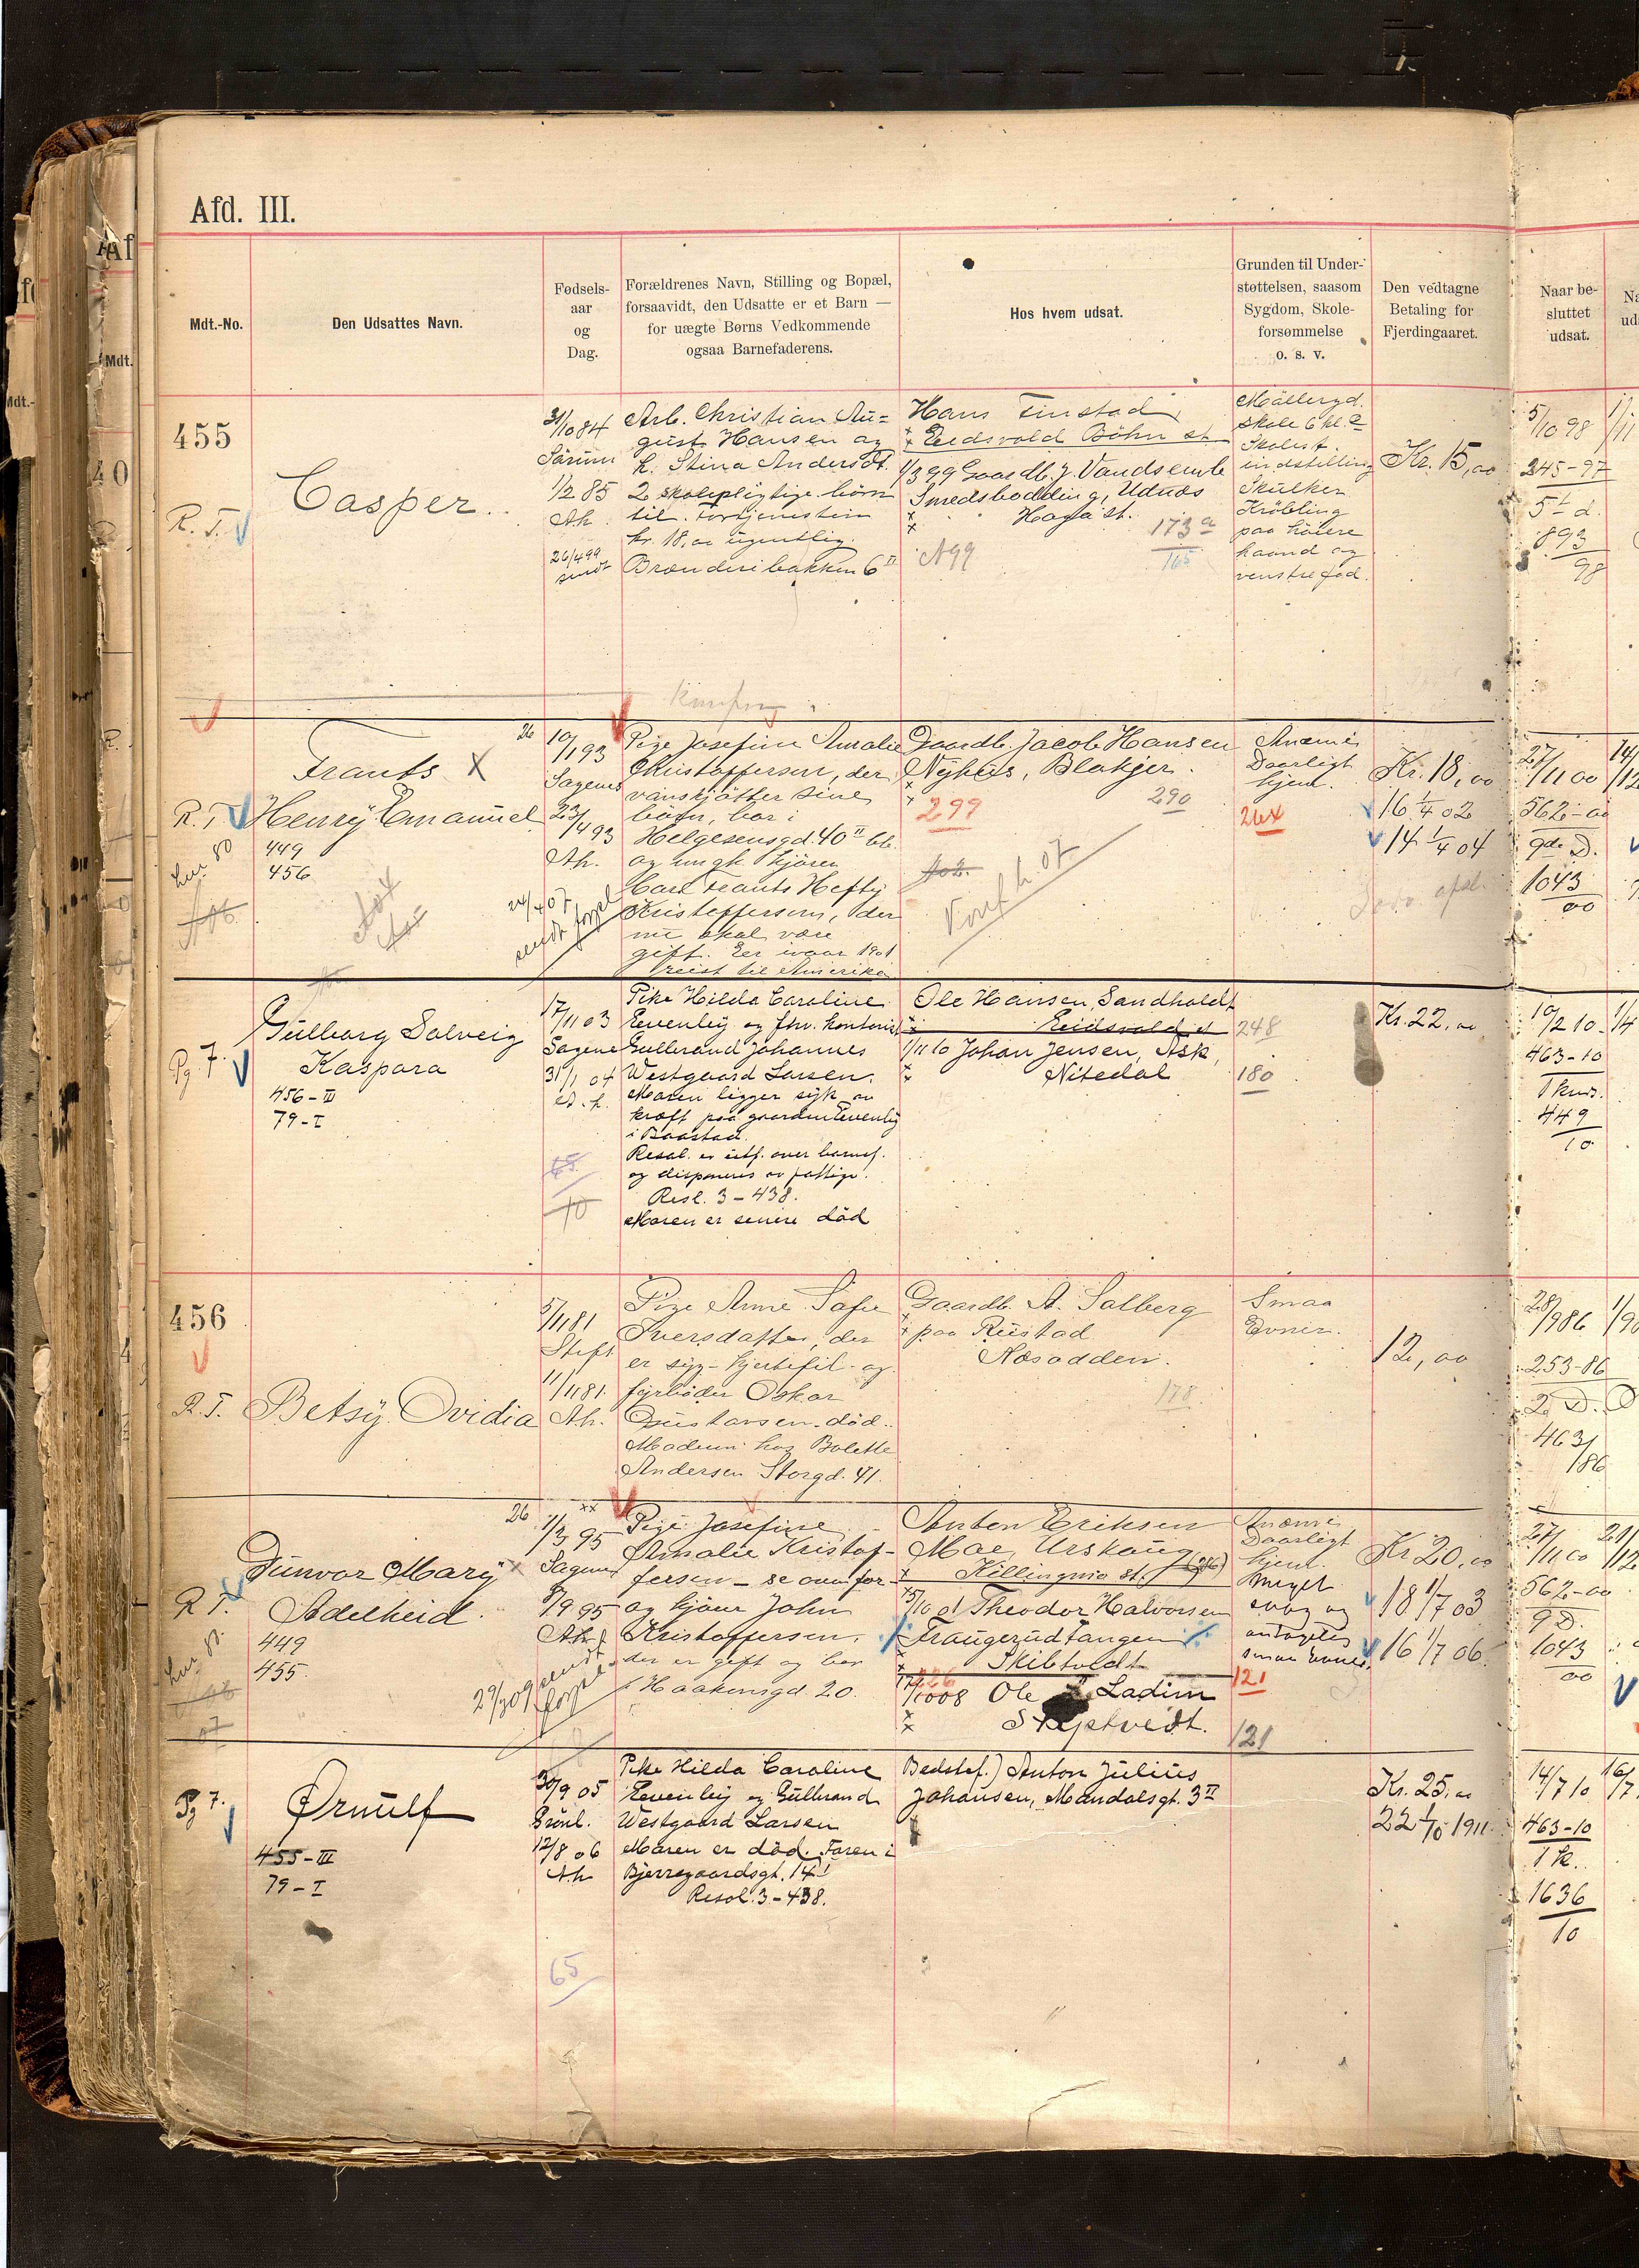 Afd. III.
Mdt.-No.
Den Udsattes Navn.
Fødsels-
aar
og
Dag.
Forældrenes Navn, Stilling og Bopæl,
forsaavidt, den Udsatte er et Barn —
for uægte Børns Vedkommende
ogsaa Barnefaderens.
Hos hvem udsat.
Grunden til Under-
støttelsen, saasom
Sygdom, Skole-
forsømmelse
o. s. v.
Den vedtagne
Betaling for
Fjerdingaaret.
Naar be-
sluttet
udsat.
455
R. T.
Casper.
31/10 84
Sørum
1/2 85
Ak.
26/4 99
sendt
Arb. Christian Au=
gust Hansen og
h. Stina Andersdt.
2 skolepligtige børn
til. Fortjenesten
kr. 18,00 ugentlig.
Brænderibakken 6 II
Hans Finstad
Eidsvold Bøhn st.
1/3 99 Gaardb. J. Vandsemb
Smedsbødding, Udnæs
Haga st.
173 a
165
A99
Møllergd.
skole 6 kl.
Skolest.
indstilling
Skulker
Krøbling
paa høire
haand og
venstre fod.
Kr. 15,00
5/10 98
245-97
5te d.
893
98
Frants X
Henry Emanuel
R. T.
449
456
26
10/1 93
Sagene
23/4 93
Ak.
24/4 07
sendt forpl
Pige Josefine Amalie
Christoffersen, der
vanskjøtter sine
børn, bor i
Helgesensgd. 40 II bk.
og ungk. kjører
Carl Frants Hefty
Kristoffersen, der
nu skal være
gift. Er ivaar 1901
reist til Amerika
Gaardb. Jacob Hansen
Nyhus, Blakjer.
299
290
Konf. h. 07
Anæmi
Daarligt
hjem.
264
Kr. 18,00
16 1/4 02
14 1/4 04
27/11 00
562-00
9de D.
1043
00
Gulborg Solveig
Kaspara
Pg 7.
456-III
79-I
17/11 03
Sagene
31/1 04
Pike Hilda Caroline
Evenby og fhv. kontorist
Gullbrand Johannes
Westgaard Larsen.
Moren ligger syk av
kræft paa gaarden Evenby
i Baastad.
Resol. er utf. over barnef.
og disponeres av fattigv.
Resl. 3-438.
Moren er senere død
10
Ole Hansen Sandholdt
Eidsvold st
1/11 10 Johan Jensen, Ask,
Nitedal
248
180
Kr. 22,00
10/2 10
463-10
449
10
456
R. T.
Betsy Ovidia
5/11 81
Stift
11/11 81
Ak.
Pige Anne Sofie
Iversdatter, der
er syg - hjertefeil - og
fyrbøder Oskar
Gustavsen - død.
Moderen hos Bolette
Andersen Storgd. 41.
Gaardb. A. Solberg
paa Rustad
Næsodden.
178
Smaa
Evner.
12,00
28/9 86
253-86
2. D.
463
186
Gunvor Mary
Adelheid.
R T.
449
455.
26
1/3 95
Sagene
8/9 95
Ak.
29/3 09 sendt
forpl.
Pige Josefine
Amalie Kristof-
fersen - se ovenfor -
og kjører John
Kristoffersen,
der er gift og bor
Haakonsgd 20.
Anton Eriksen
Moe, Urskoug
Killingmo st.
Theodor Halvorsen
Fraugerudtangen
Skibtvedt
Ole Ladim
Skiptvedt.
Anæmi
Daarligt
hjem.
Meget
svag og
antagelig
smaa Evner.
121
121
Kr 20,00
18 1/7 03
16 1/7 06.
27/11 00
562-00
9 D.
1043
00
Pg 7.
Ørnulf
455-III
79-I
30/9 05
Grønl.
12/8 06
Ak
65
Pike Hilda Caroline
Evenby og Gullbrand
Westgaard Larsen
Moren er død. Faren i
Bjerregaardsgt. 14 I
Resol. 3-438.
Bedstef.) Anton Julius
Johansen, Mandalsgt. 3 II
Kr. 25,00
22 1/10 1911.
14/7 10
463-10
1 K.
1636
10